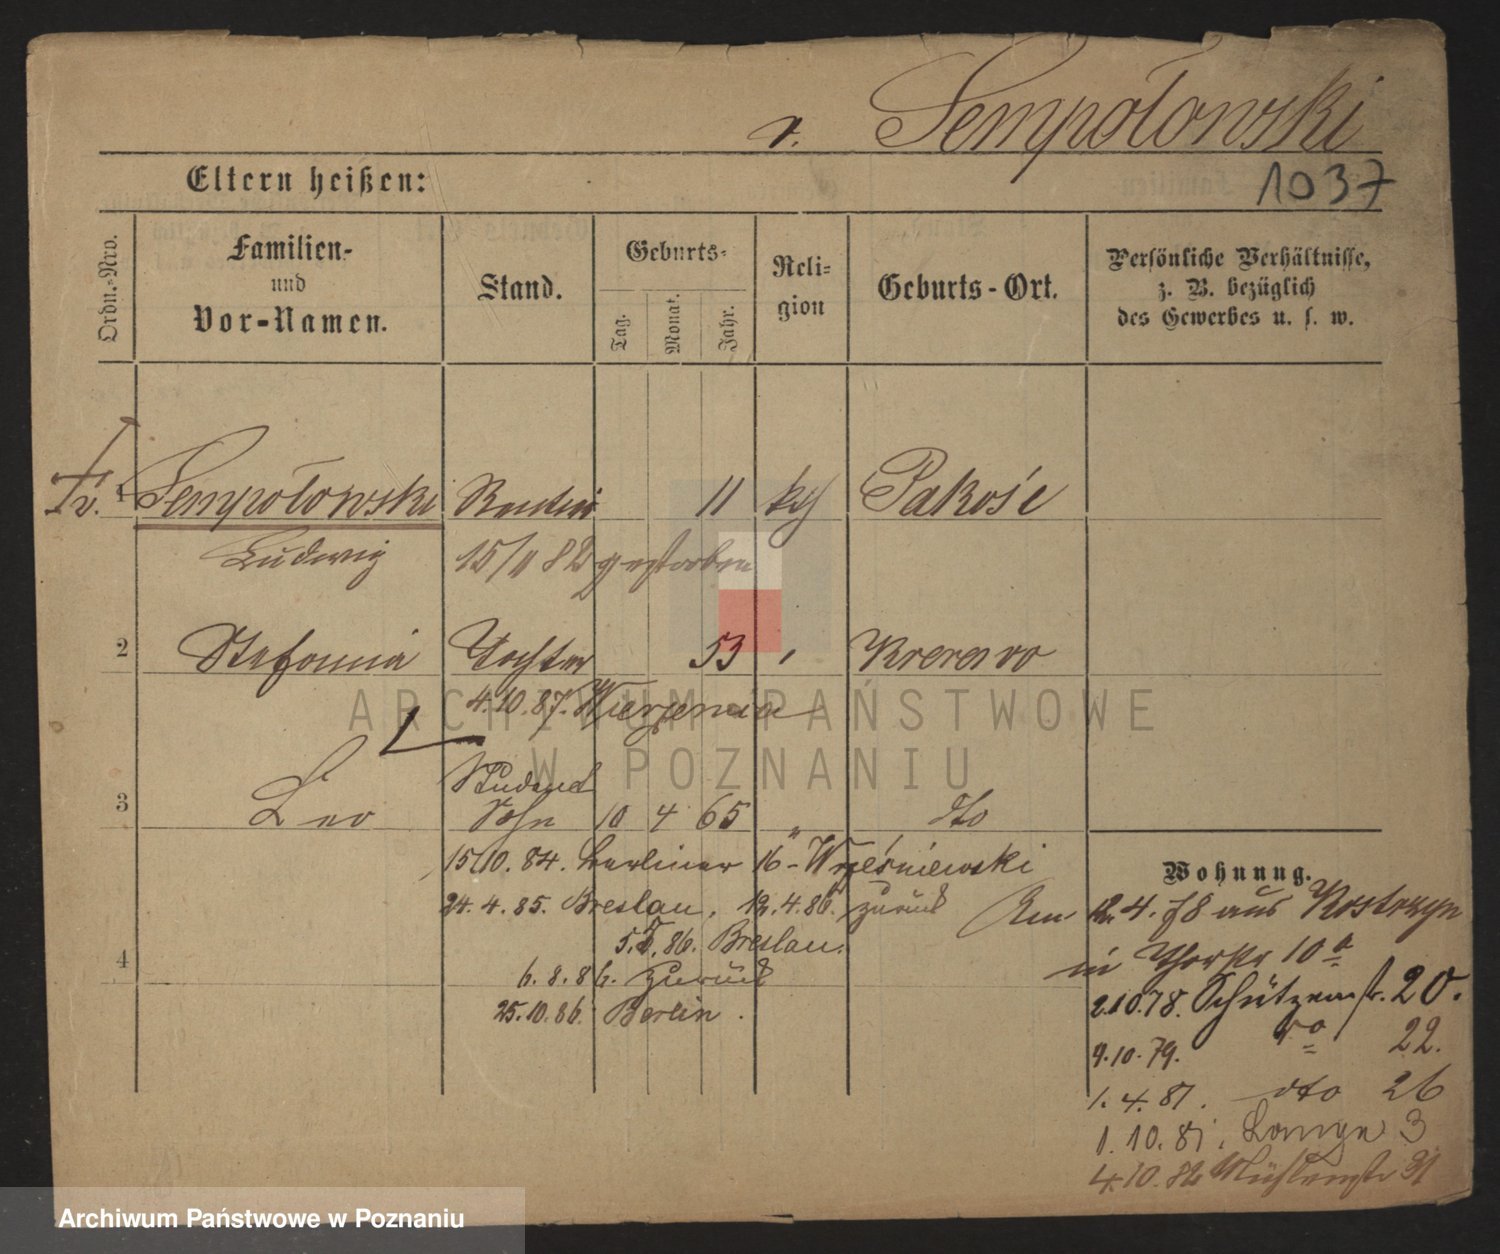 v. Sempołowski
1037
Eltern heißen:
Ordn.-Nro.
Familien-
und
Vor-Namen.
Stand.
Geburts-
Tag.
Monat.
Jahr.
Reli-
gion
Geburts-Ort.
Persönliche Verhältnisse,
z. B. bezüglich
des Gewerbes u. s. w.
1 v. Sempołowski Rentier 11 kth Pakość
Ludwig 15/11 82 gestorben
2 Stefania Tochter 53 Krerowo
4.10.87.
Student
3 Leo Sohn 10 4 65 " dto
15/10.84. Berliner 16 - Wrześniewski
24.4.85. Breslau, 12.4.86. zurück
5.5.86. Breslau.
4
6.8.86. zurück
25.10.86. Berlin.
Wohnung.
Am 12. 4. 78 aus Kostrzyn
in Thorstr 10a
2.10.78. Schützenstr. 20.
9.10.79. do 22.
1.4.81. dto 26
1.10.81. Lange 3
4.10.82 Mühlenstr 31
ARCHIWUM PAŃSTWOWE
W POZNANIU
Archiwum Państwowe w Poznaniu